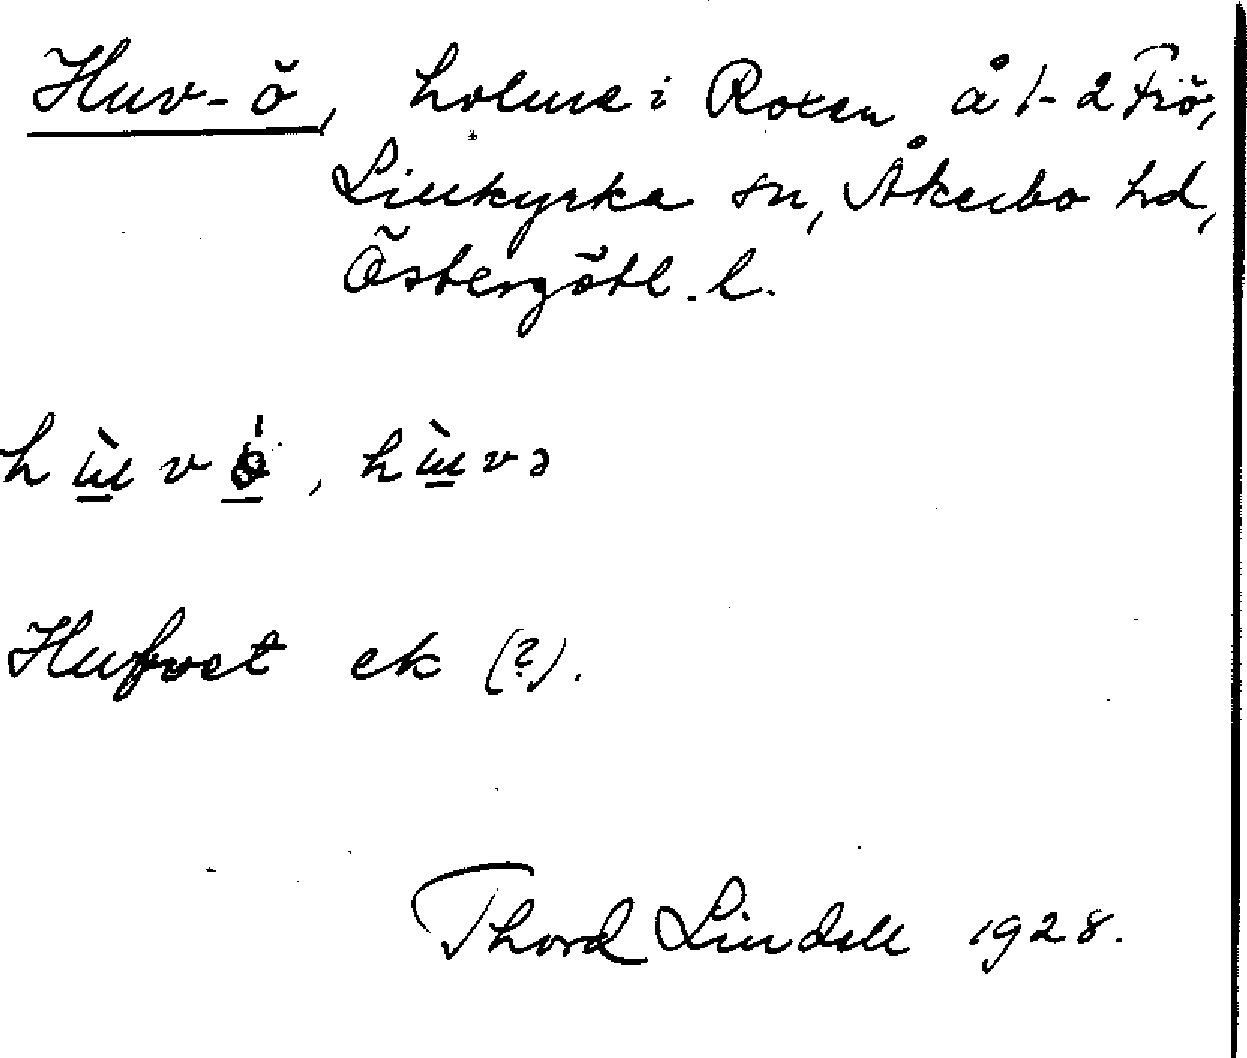 Huv-ö, holme i Roxen å 1-2 Frö,
Linkyrka sn, Åkerbo hd,
Östergötl. l.
hɯ̀vǿ, hɯ̀və
Hufvet ek (?).
Thord Lindell 1928.